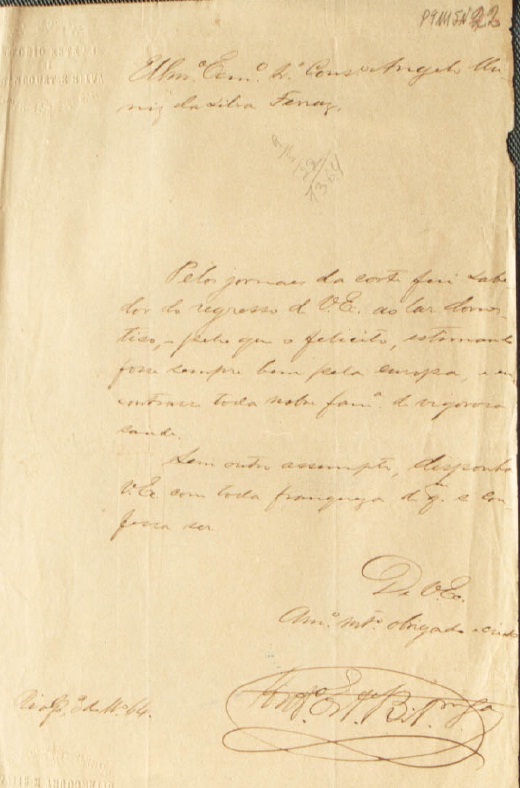 P9M5N22
Illmº. Exmº. Sr. Consº. Angelo Mu-
niz da Silva Ferraz.
1364
Pelos jornaes da corte fui sabe
dor do regresso d V.E. ao lar domes-
tico, - pelo que o felicito, estimando
fosse sempre bem pela europa, e en
contrasse toda nobre famª. de vigorosa
saude.
Sem outro assumpto, disponha
V.E. com toda franqueza d. q. se con
fessa ser
De V.E.
Amº. mtº. obrigado
64.